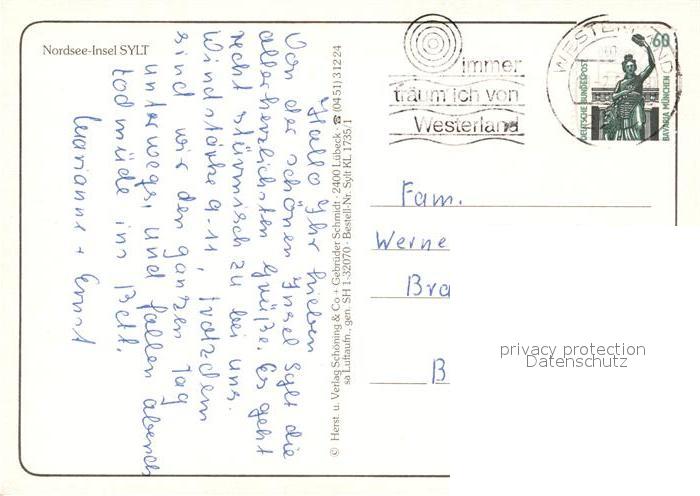 Nordsee-Insel SYLT
Hallo Ihr Lieben
Von der schönen Insel Sylt die
allerherzlichsten Grüße. Es geht
recht stürmisch zu bei uns.
Windstärke 9-11, trotzdem
sind wir den ganzen Tag
unterwegs, und fallen abends
todmüde ins Bett.
Marianne + Ernst
© Herst. u. Verlag Schöning & Co + Gebrüder Schmidt · 2400 Lübeck · ☎ (0451) 3 12 24
sa Luftaufn., gen. SH 1-32070 · Bestell-Nr. Sylt KL 1735/1
immer
träum ich von
Westerland
60
DEUTSCHE BUNDESPOST
BAVARIA MÜNCHEN
Fam.
Werne
Bra
B
privacy protection
Datenschutz